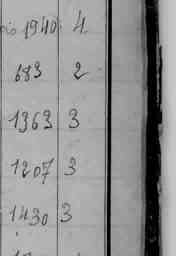 1940 4
683 2
1363 3
1207 3
1430 3